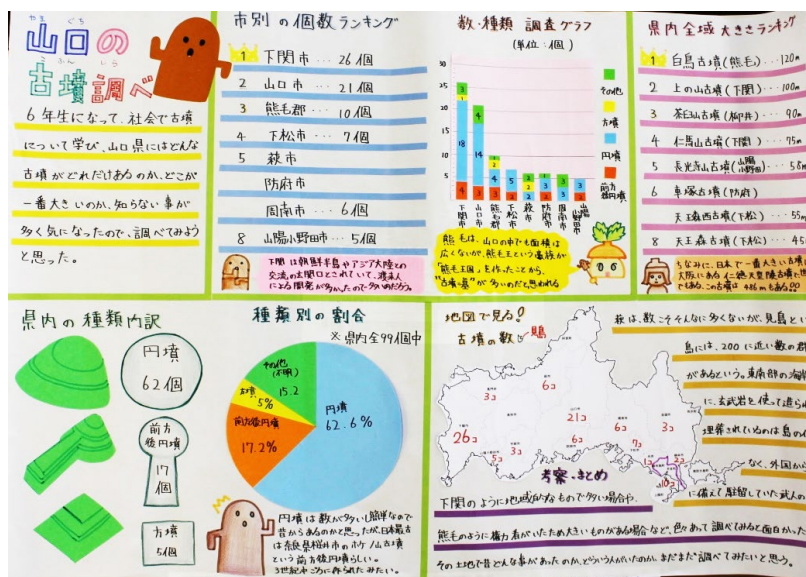 やまぐち
山口の
こふんしら
古墳調べ
6年生になって、社会で古墳
について学び、山口県にはどんな
古墳がどれだけあるのか、どこが
一番大きいのか、知らない事が
多く気になったので、調べてみよう
と思った。
市別の個数ランキング
1 下関市…26個
2 山口市…21個
3 熊毛郡…10個
4 下松市…7個
5 萩市
防府市
周南市…6個
8 山陽小野田市…5個
下関は朝鮮半島やアジア大陸との
交流の玄関口とされていて、渡来人
による開発が多かったので多いのだろう。
数・種類 調査グラフ
(単位:個)
30
25
20
15
10
5
0
その他
方墳
円墳
前方後円墳
下関市
山口市
熊毛郡
下松市
萩市
防府市
周南市
山陽小野田市
熊毛は、山口の中でも面積は
広くないが、熊毛王という豪族が
「熊毛王国」を作ったことから、
"古墳=墓"が多いのだと思われる
県内全域大きさランキング
1 白鳥古墳(熊毛)…120m
2 上の山古墳(下関)…100m
3 茶臼山古墳(柳井)…90m
4 仁馬山古墳(下関)…75m
5 長光寺山古墳(山陽小野田)…58m
6 車塚古墳(防府)
天王森西古墳(下松)…55m
8 天王森古墳(下松)…45
ちなみに、日本で一番大きい古墳
大阪にある仁徳天皇陵古墳
である。この古墳は486mもある!!
県内の種類内訳
円墳
62個
前方
後円墳
17
個
方墳
5個
種類別の割合
※県内全99個中
円墳
62.6%
前方後円墳
17.2%
方墳
5%
その他
(不明)
15.2
円墳は数が多いし簡単なので
昔からあるのかと思ったが、日本最古
は奈良県桜井市のホケノ山古墳
という前方後円墳らしい。
3世紀中ごろに作られたみたい。
地図で見る!
古墳の数
見島
3コ
6コ
26コ
21コ
5コ
3コ
6コ
6コ
7コ
3コ
1コ
2コ
10コ
萩は、数こそそんなに多くないが、見島とい
島には、200に近い数の群
があるという。東南部の海岸
に、玄武岩を使って造られ
埋葬されているのは島の
なく、外国から
に備えて駐留していた武人の
考察・まとめ
下関のように地域的なもので多い場合や、
熊毛のように権力者がいたため大きいものがある場合など、色々あって調べてみると面白かった
その土地で昔どんな事があったのか、どういう人がいたのか、まだまだ調べてみたいと思う。